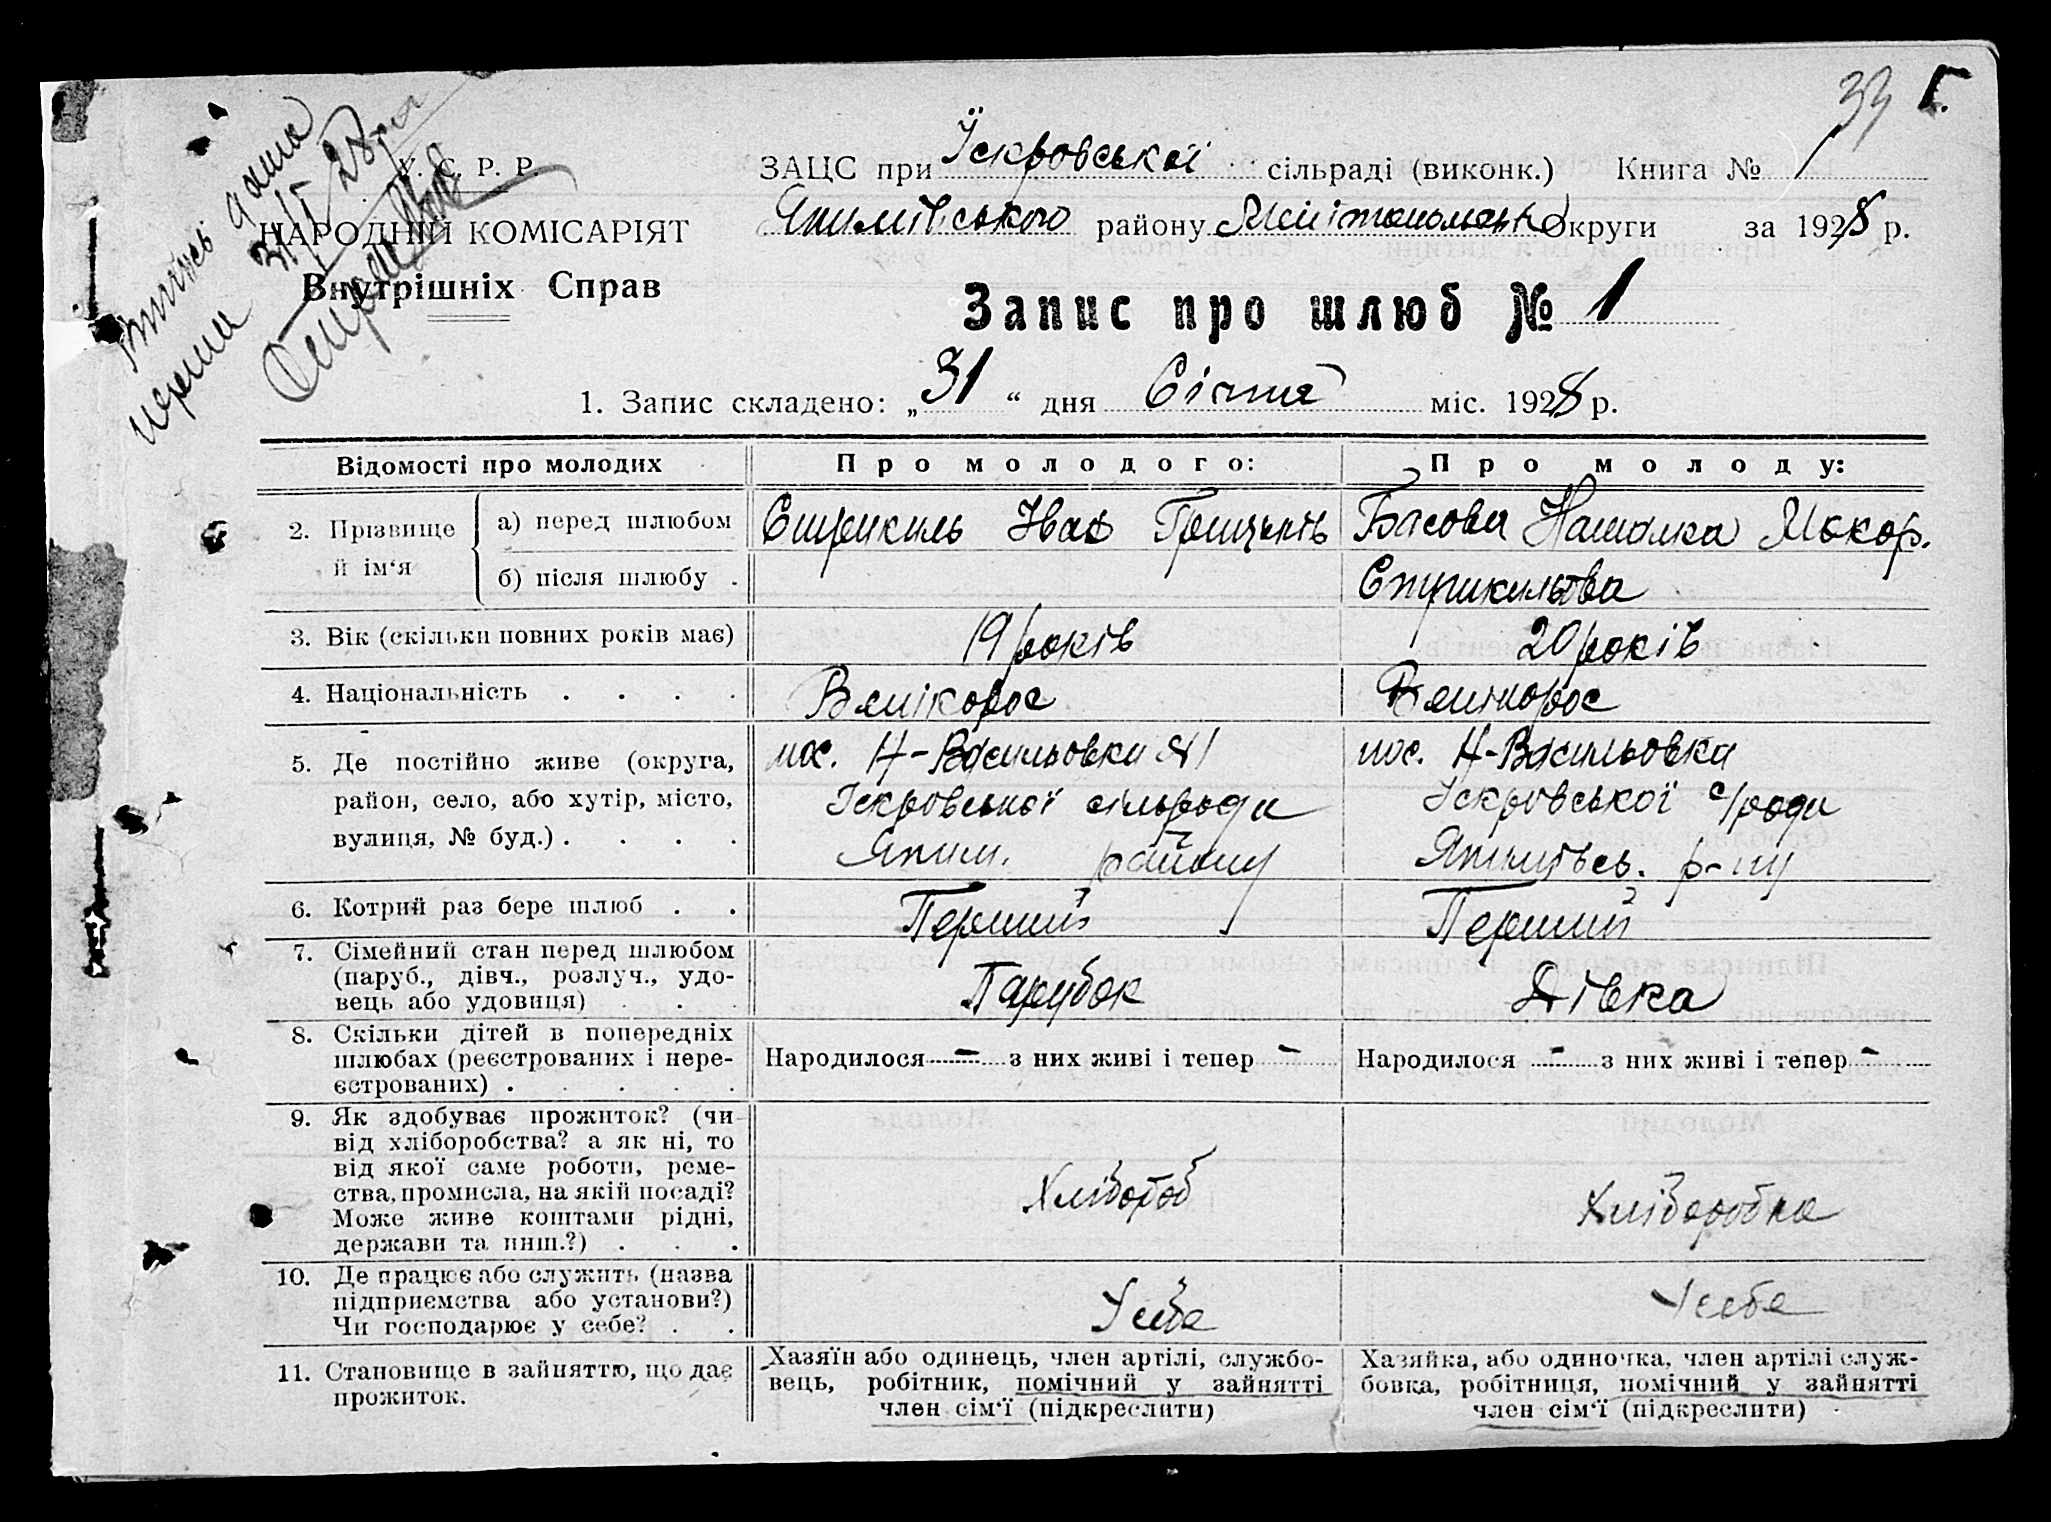 33 Г.
У. С. Р. Р.
НАРОДНІЙ КОМІСАРІЯТ
Внутрішніх Справ
ЗАЦС при Іскровської сільраді (виконк.) Книга №
Якимівського району Мелітопольсько Округи за 1928 р.
Запис про шлюб № 1
1. Запис складено: „31“ дня Січня міс. 1928 р.
Відомості про молодих Про молодого: Про молоду:
2. Прізвище й ім‘я
а) перед шлюбом Стрикиль Іван Басова Наталка Макар.
б) після шлюбу . Стрикильова
3. Вік (скільки повних років має) 19 років 20 років
4. Національність . . . . Велікорос Великорос
5. Де постійно живе (округа, пос. Н-Васильовка №1 пос. Н-Васильовка
район, село, або хутір, місто, Іскровської сільради Іскровської с/ради
вулиця, № буд.) . . . . Яким. району Якимівсь. р-ну
6. Котрий раз бере шлюб . . Перший Перший
7. Сімейний стан перед шлюбом
(паруб., дівч., розлуч., удо- Парубок Дівка
вець або удовиця) . . .
8. Скільки дітей в попередніх
шлюбах (реєстрованих і нере- Народилося - з них живі і тепер - Народилося - з них живі і тепер -
єстрованих) . . . . .
9. Як здобуває прожиток? (чи
від хліборобства? а як ні, то
від якої саме роботи, реме-
ства, промисла, на якій посаді? Хлібороб Хліборобка
Може живе коштами рідні,
держави та инш.?) . . .
10. Де працює або служить (назва
підприємства або установи?) У себе У себе
Чи господарює у себе? . .
11. Становище в зайняттю, що дає Хазяїн або одинець, член артілі, службо- Хазяйка, або одиночка, член артілі служ-
прожиток. вець, робітник, помічний у зайнятті бовка, робітниця, помічний у зайнятті
член сім‘ї (підкреслити) член сім‘ї (підкреслити)